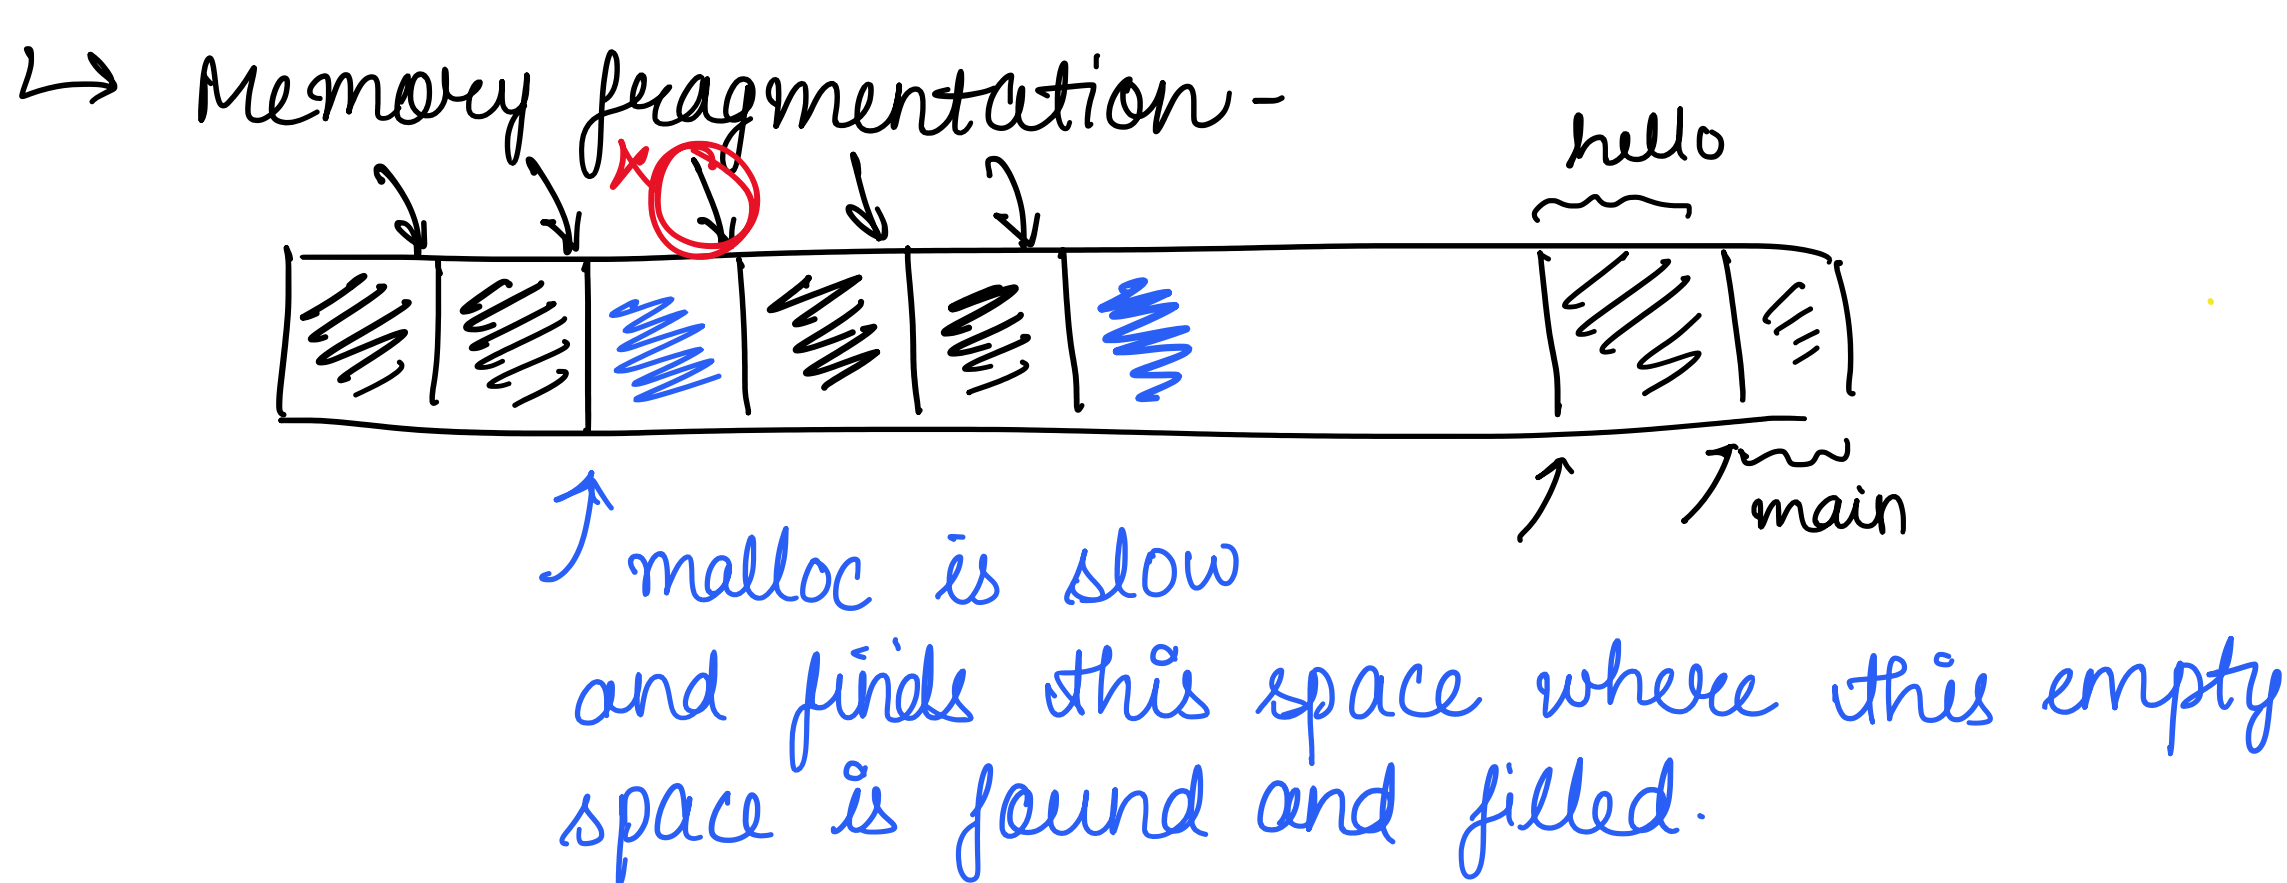 ↳ Memory fragmentation -
hello
main
malloc is slow
and finds this space where this empty
space is found and filled.